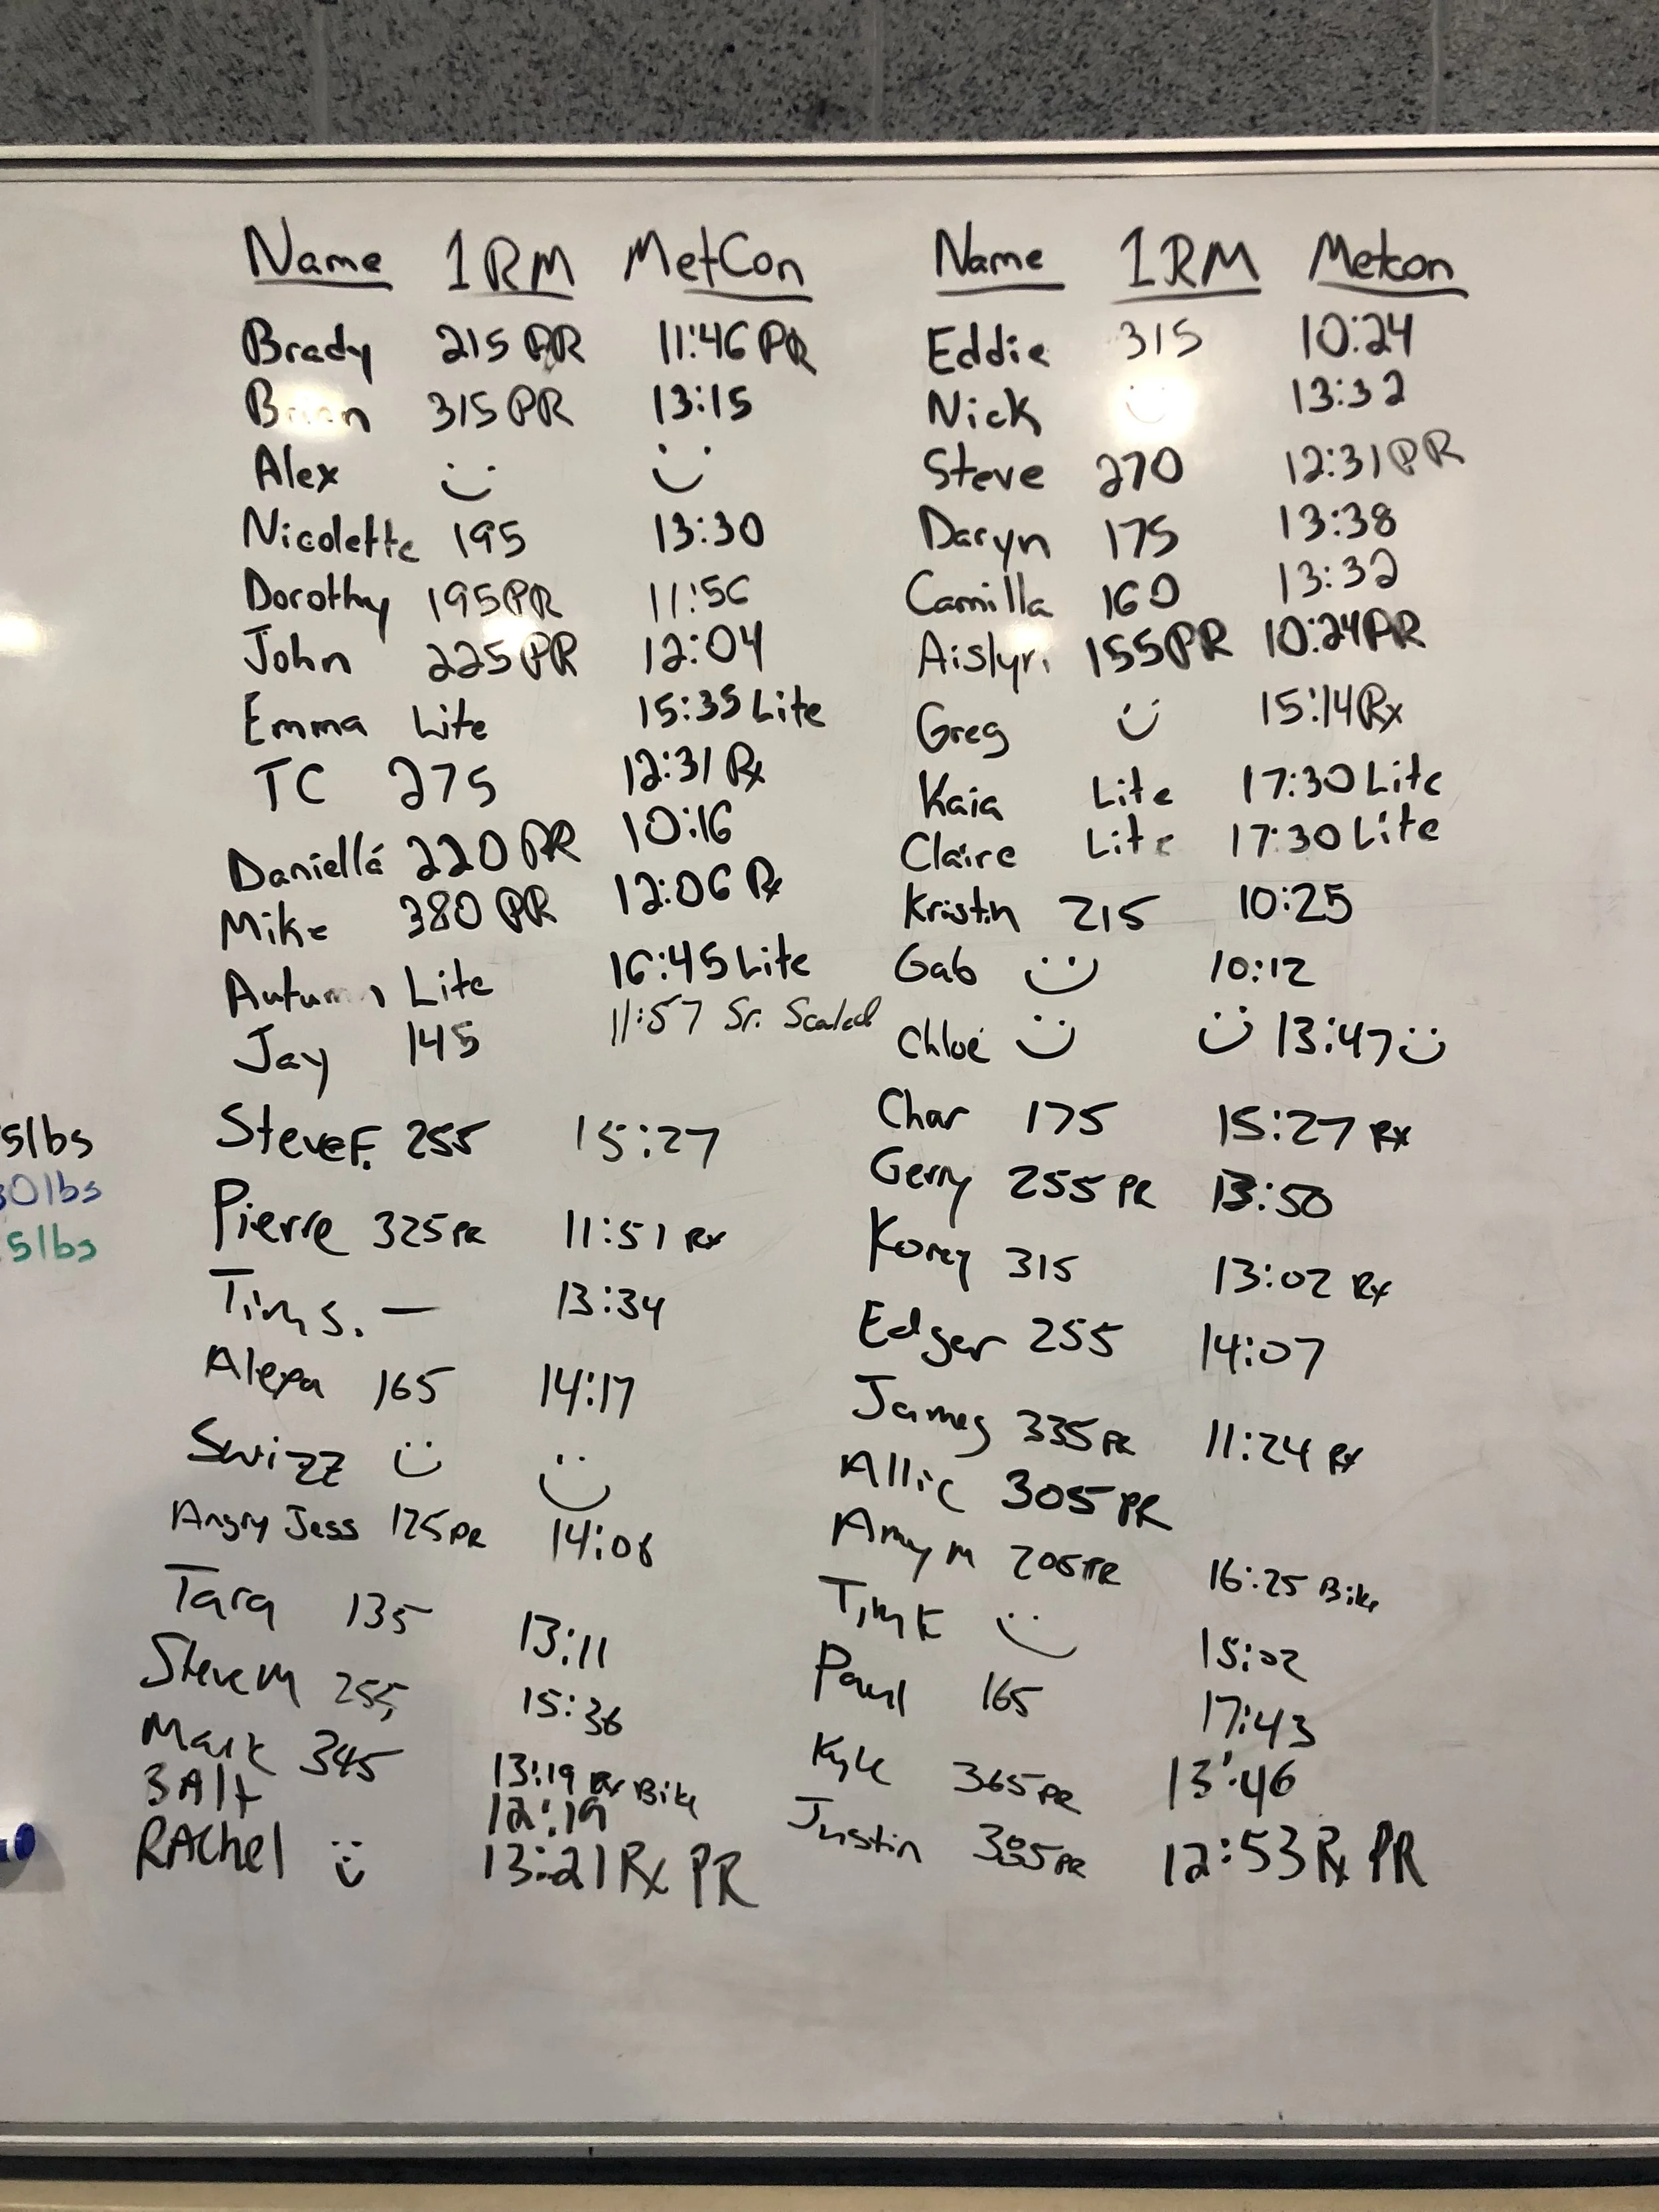 Name 1RM MetCon
Brady 215 PR 11:46 PR
315 PR 13:15
Alex
Nicolette 195 13:30
Dorothy 195 PR 11:56
John 225 PR 12:04
Emma Lite 15:35 Lite
TC 275 12:31 Rx
Daniella 220 PR 10:16
Mike 380 PR 12:06 Rx
Autumn Lite 16:45 Lite
Jay 145 11:57 Sr. Scaled
Steve F. 255 15:27
Pierre 325 PR 11:51 Rx
Tim S. — 13:34
Alexa 165 14:17
Swizz
Angry Jess 125 PR
Tara 135 13:11
Steve M 255 15:36
Mark 345 13:19 Rx Bike
12:19
RAchel 13:21 Rx PR
Name 1RM Metcon
Eddie 315 10:24
Nick 13:32
Steve 270 12:31 PR
Daryn 175 13:38
Camilla 160 13:32
Aislyn 155 PR 10:24 PR
Greg 15:14 Rx
Kaia Lite 17:30 Lite
Claire Lite 17:30 Lite
Kristin 215 10:25
Gab 10:12
Chloe 13:47
Char 175 15:27 Rx
Gerry 255 PR 13:50
Korey 315 13:02 Rx
Edger 255 14:07
James 335 PR 11:24 Rx
Allie 305 PR
Amy M 205 PR 16:25 Bike
Tim K 15:02
Paul 165 17:43
Kyle 365 PR 13:46
Justin PR 12:53 Rx PR
5lbs
0lbs
5lbs